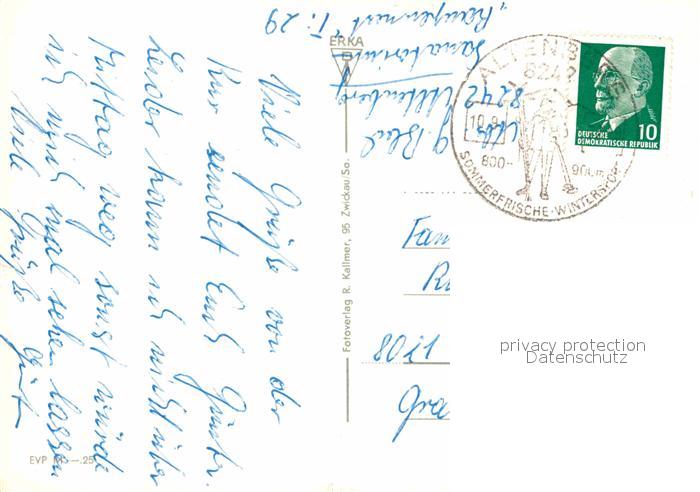 Viele Grüße von der
Kur sendet Euch Günter.
Leider kann ich nicht über
Mittag weg sonst würde
ich mich mal sehen lassen
Viele Grüße Günter
8242 Altenberg
Sanatorium
"Raupennest" T: 29
ERKA
Fotoverlag R. Kallmer, 95 Zwickau/Sa.
EVP M -.25
ALTENBERG
8242
10.9.
800-
900 m
SOMMERFRISCHE · WINTERSPORT
10
DEUTSCHE
DEMOKRATISCHE REPUBLIK
Fam
8021
privacy protection
Datenschutz